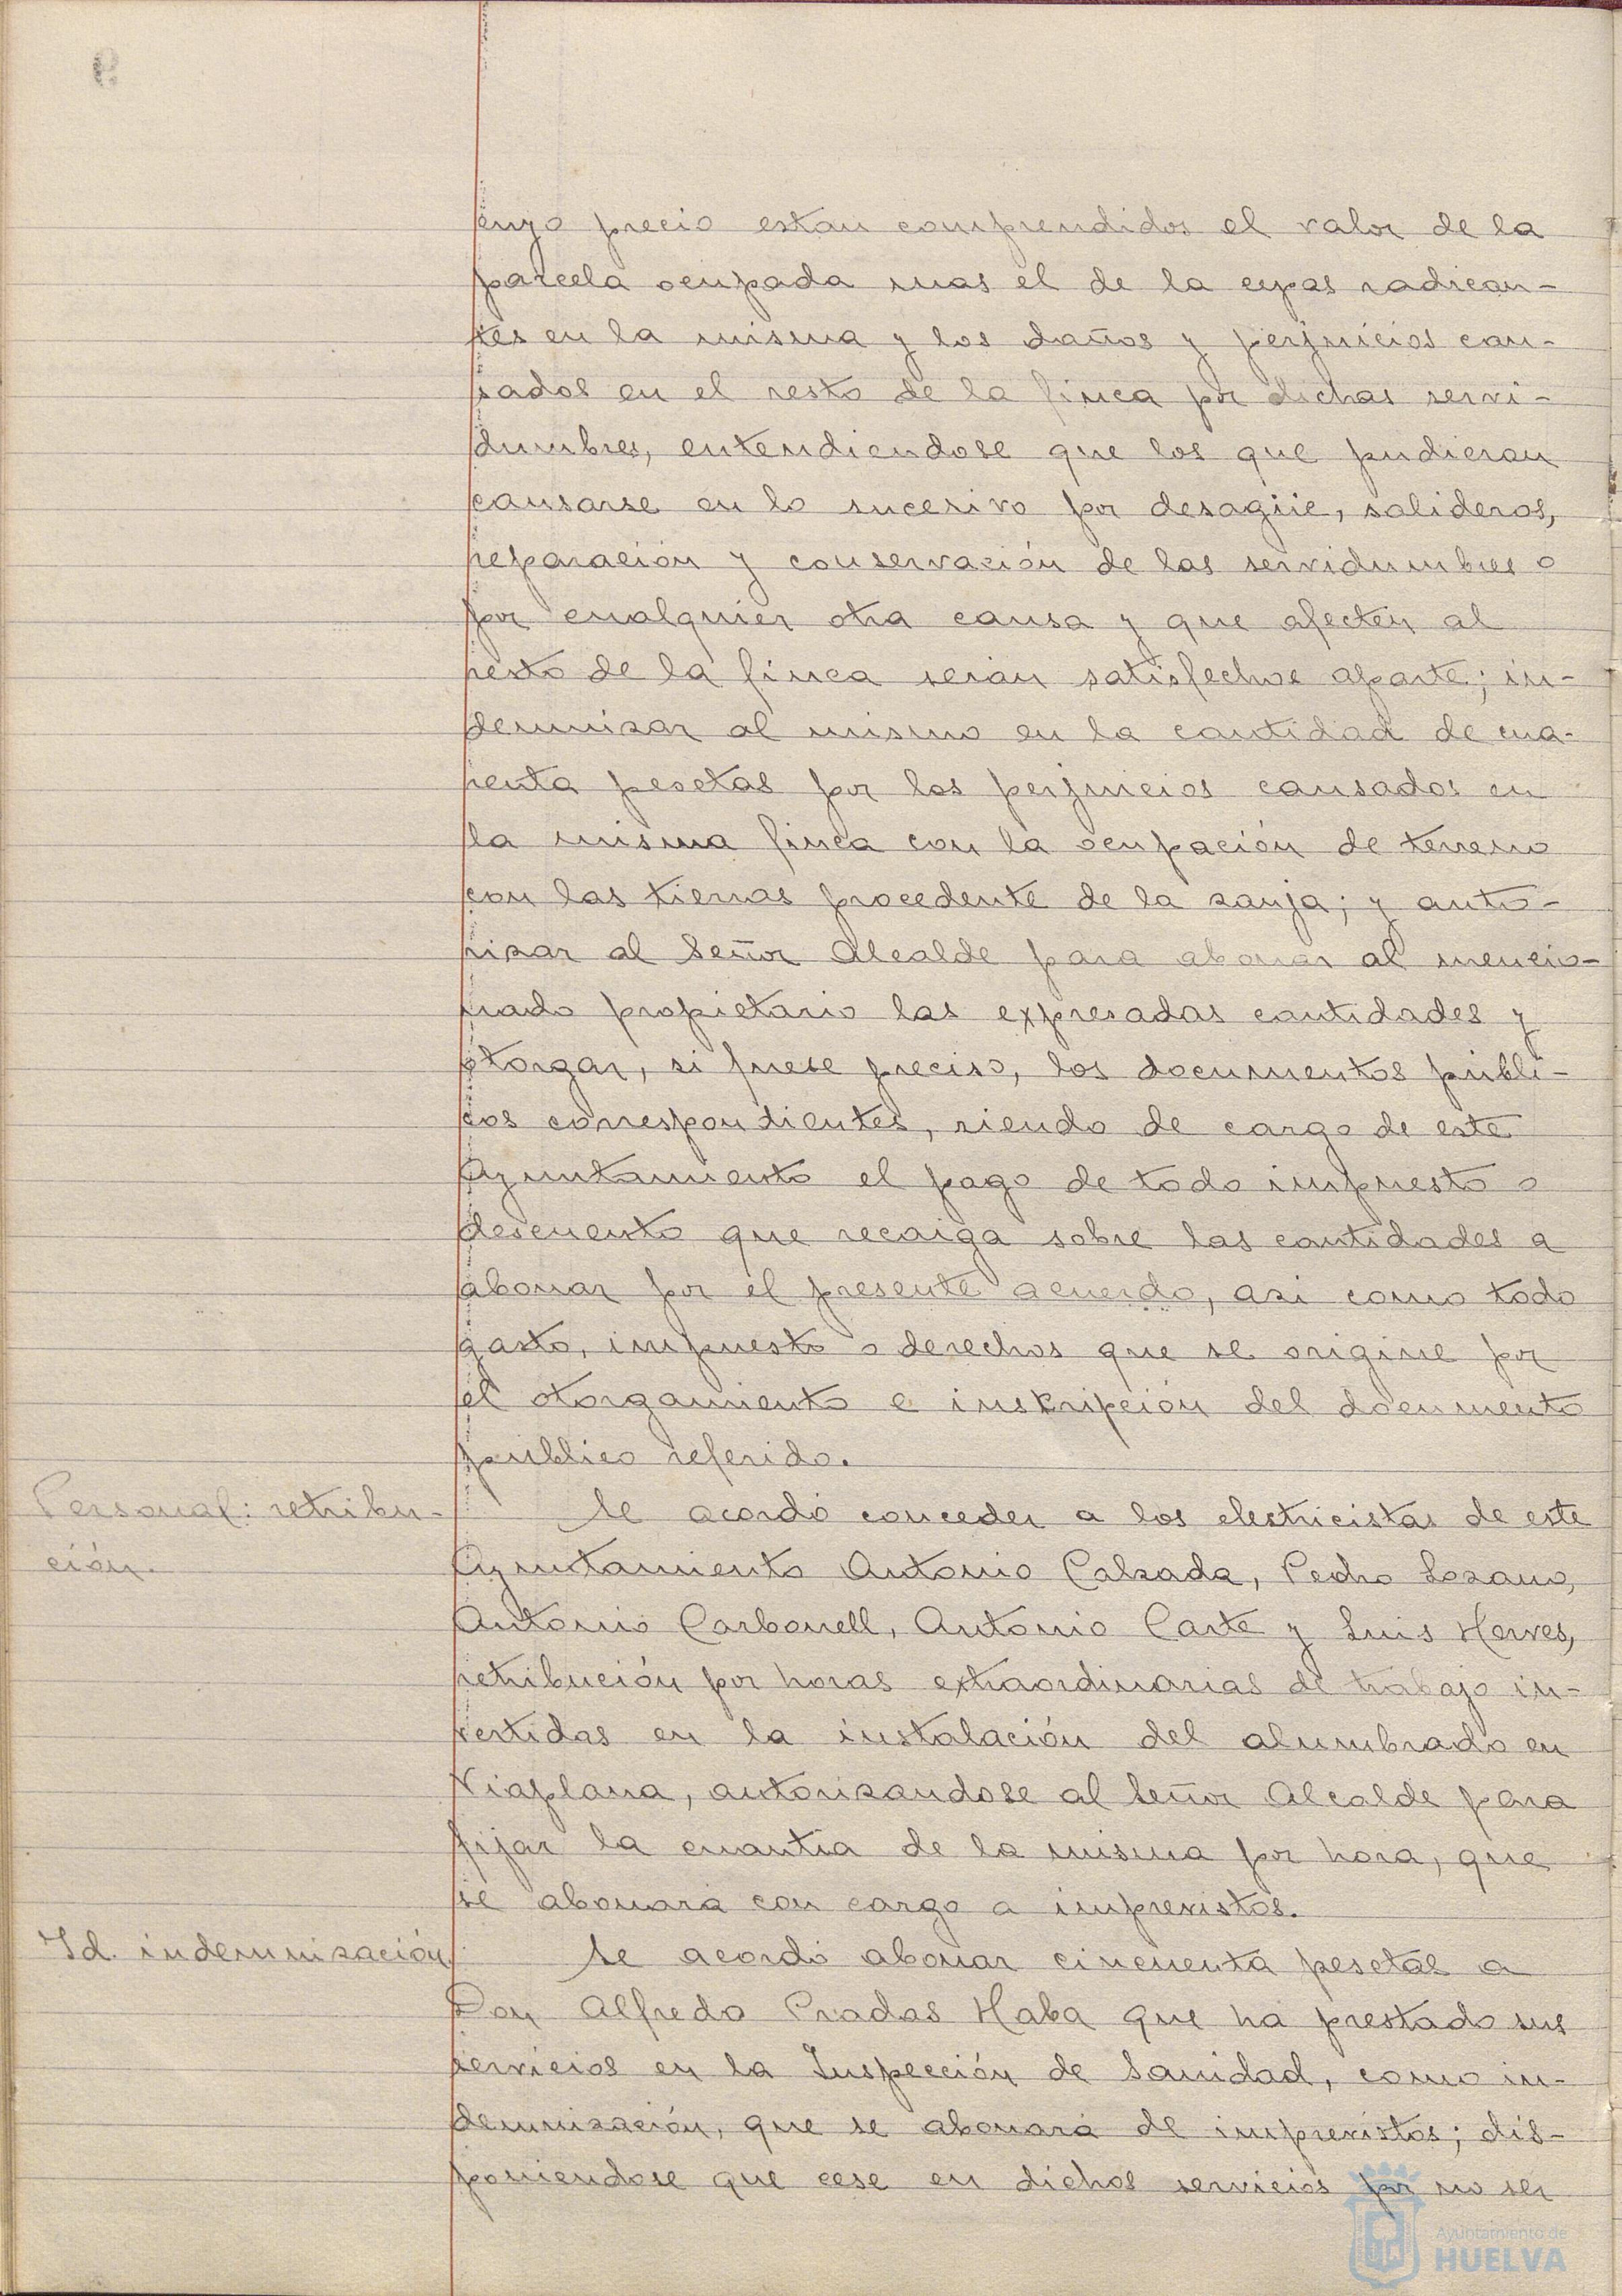 cuyo precio estan comprendidos el valor de la
parcela ocupada mas el de la cepas radican-
tes en la misma y los daños y perjuicios cau-
sados en el resto de la finca por dichas servi-
dumbres, entendiendose que los que pudieran
causarse en lo sucesivo por desagüe, salideros,
reparación y conservación de las servidumbres o
por cualquier otra causa y que afecten al
resto de la finca serán satisfechos aparte; in-
demnizar al mismo en la cantidad de cua-
renta pesetas por los perjuicios causados en
la misma finca con la ocupación de terreno
con las tierras procedente de la zanja; y auto-
rizar al Señor Alcalde para abonar al mencio-
nado propietario las expresadas cantidades y
otorgar, si fuese preciso, los documentos públi-
cos correspondientes, siendo de cargo de este
Ayuntamiento el pago de todo impuesto o
descuento que recaiga sobre las cantidades a
abonar por el presente acuerdo, asi como todo
gasto, impuesto o derechos que se origine por
el otorgamiento e inscripción del documento
publico referido.
Personal: retribu-
ción.
Se acordó conceder a los electricistas de este
Ayuntamiento Antonio Calzada, Pedro Lozano,
Antonio Carbonell, Antonio Carte y Luis Herves,
retribución por horas extraordinarias de trabajo in-
vertidas en la instalación del alumbrado en
Viaplana, autorizandose al Señor Alcalde para
fijar la cuantia de la misma por hora, que
se abonará con cargo a imprevistos.
Id. indemnización
Se acordó abonar cincuenta pesetas a
Don Alfredo Pradas Haba que ha prestado sus
servicios en la Inspección de Sanidad, como in-
demnización, que se abonará de imprevistos; dis-
poniendose que cese en dichos servicios por no ser
Ayuntamiento de
HUELVA